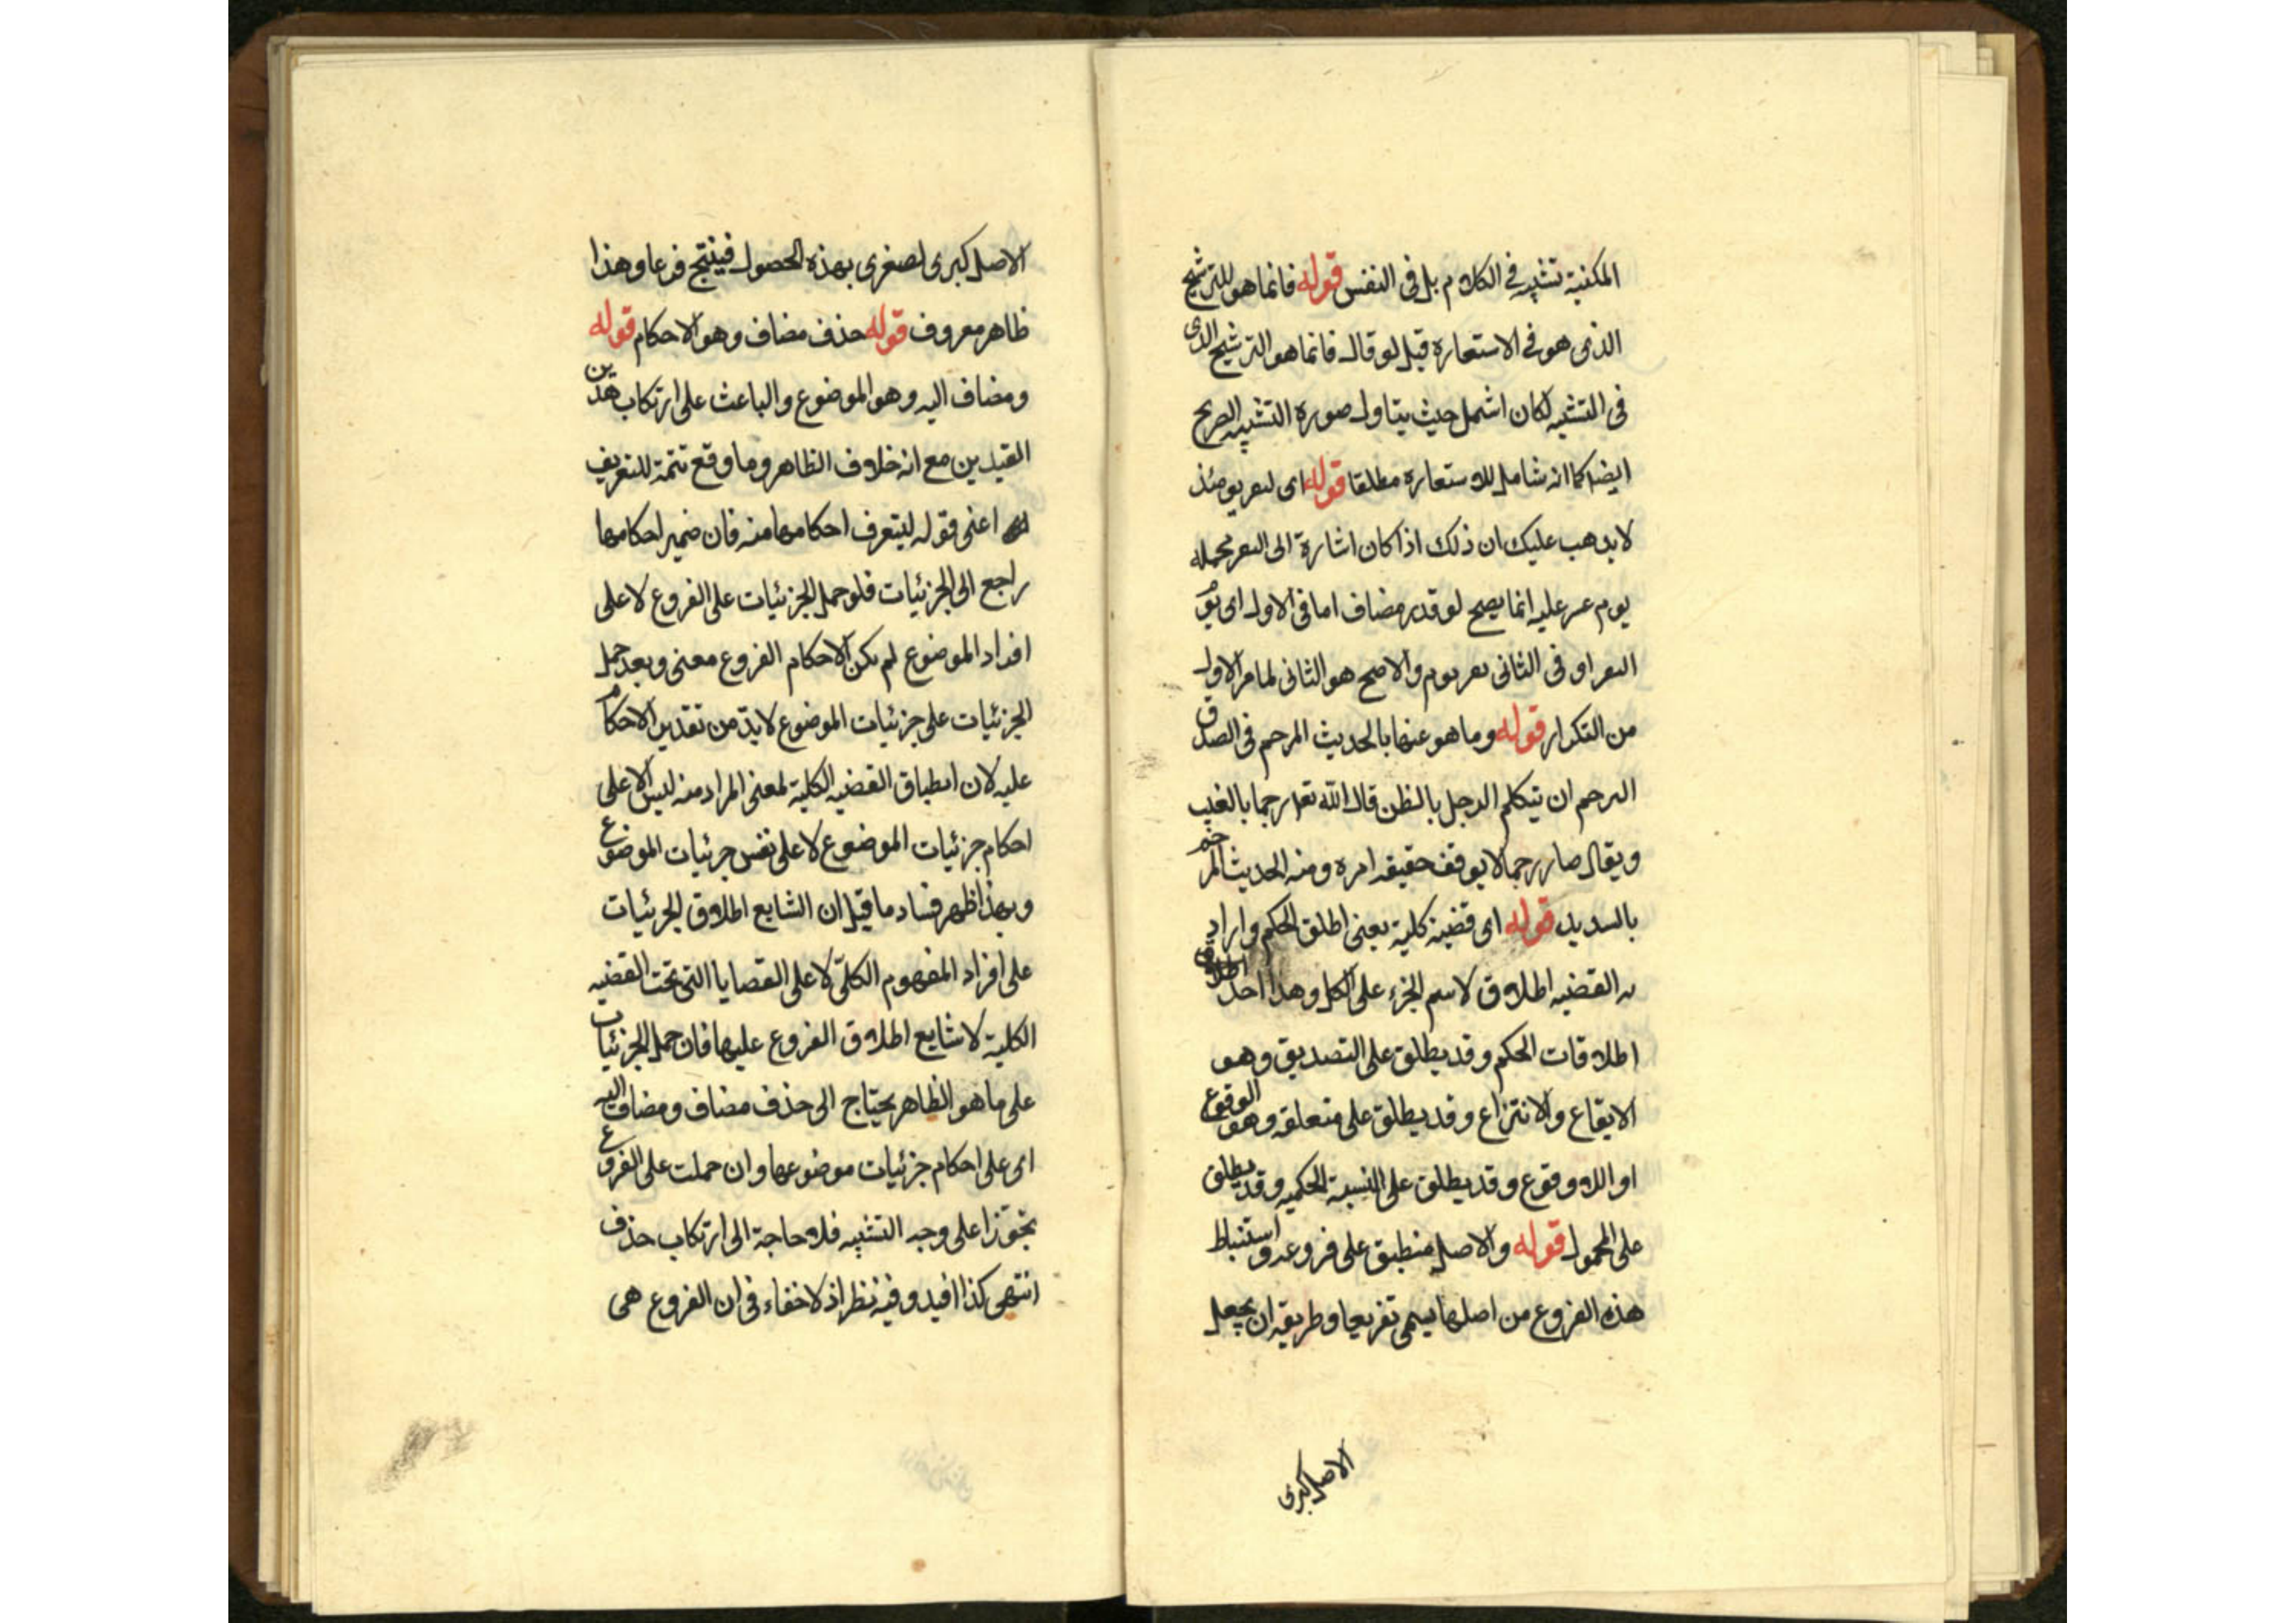 المكنية تشبيه في الكلام بل في النفس قوله فانما هو للترشيح
الذى هو في الاستعارة قيل لو قال فانما هو الترشيح الذى
في التشبيه لكان اشمل حيث يتاول صورة التشبيه الصريح
ايضا كما انه شامل للاستعارة مطلقا قوله اى
لا يذهب عليك ان ذلك اذا كان اشارة الى
يوم عسر عليه انما يصح لو قدر مضاف اما في الاول اى
او في الثانى يوم والاصح هو الثانى لما مر الاول
من التكرار قوله وما هو عنها بالحديث المرجم في الصدق
الرجم ان يتكلم الرجل بالظن قال الله تعا رجما بالغيب
ويقال صار رجما لا يوقف حقيقة امره ومنه الحديث المرجم
قوله اى قضية كلية يعنى اطلق الحكم واراد
به القضيه اطلاق لاسم الجزء على الكل وهذا احد
اطلاقات الحكم وقد يطلق على التصديق وهو
الايقاع والانتزاع وقد يطلق على متعلقه وهو الوقوع
او اللاوقوع وقد يطلق على النسبة الحكميه وقد يطلق
على المحمول قوله والاصل منطبق على فروعه واستنباط
هذه الفروع من اصلها يسمى تفريعا وطريقه ان يجعل
الاصل كبرى
الاصل كبرى لصغرى بهذه الحصول فينتج فرعا وهذا
ظاهر معروف قوله حذف مضاف وهو الاحكام قوله
ومضاف اليه وهو الموضوع والباعث على ارتكاب هذين
القيدين مع انه خلاف الظاهر وما وقع تتمة للتعريف
اعنى قوله ليتعرف احكامها منه فان ضمير احكامها
راجع الى الجزئيات فلو حمل الجزئيات على الفروع لا على
افراد الموضوع لم يكن لاحكام الفروع معنى وبعد حمل
الجزئيات على جزئيات الموضوع لا بد من تقدير الاحكام
عليه لان انطباق القضيه الكلية لمعنى المراد منه ليس الا على
احكام جزئيات الموضوع لا على نفس جزئيات الموضوع
وبهذا ظهر فساد ما قيل ان الشايع اطلاق الجزئيات
على افراد المفهوم الكلى لا على القضايا التى تحت القضيه
الكلية لا شايع اطلاق الفروع عليها فان حمل الجزئيات
على ما هو الظاهر يحتاج الى حذف مضاف ومضاف اليه
اى على احكام جزئيات موضوعها وان حملت على الفروع
تجوزا على وجه التشبيه فلا حاجة الى ارتكاب حذف
انتهى كذا افيد وفيه نظر اذ لا خفاء في ان الفروع هى